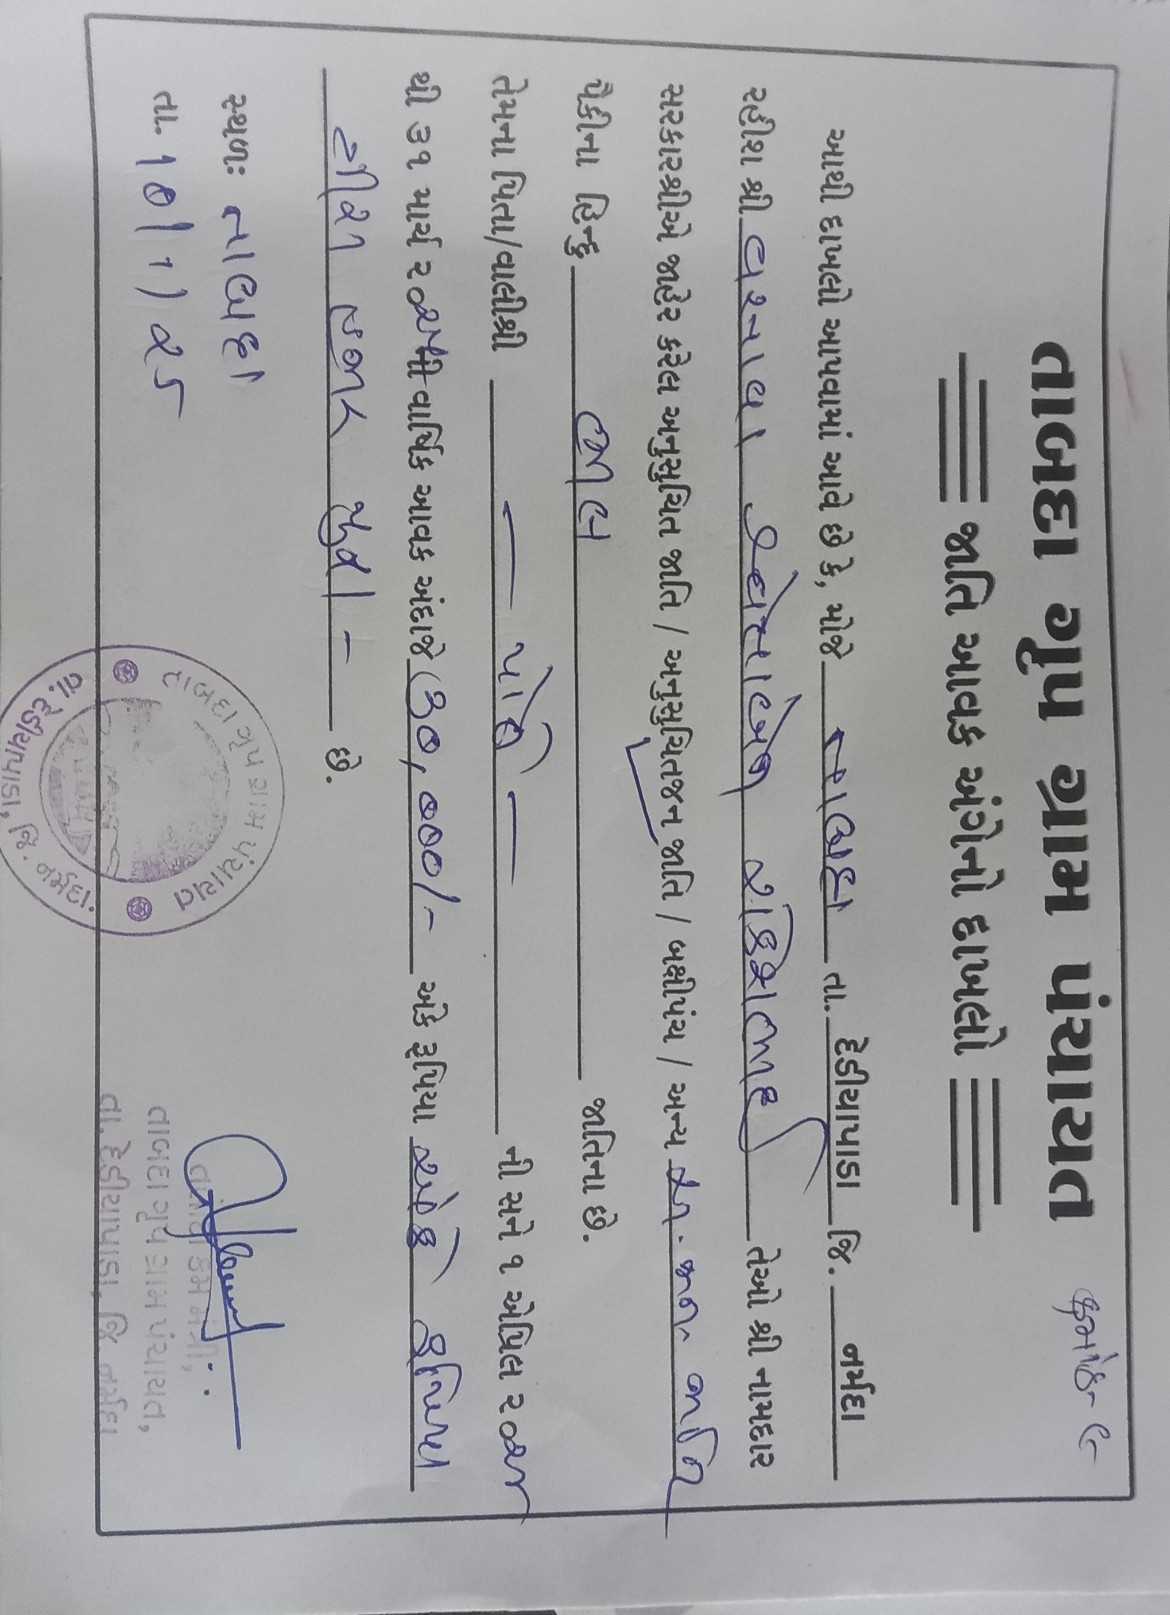 તાબદા ગ્રુપ ગ્રામ પંચાયત
જાતિ આવક અંગેનો દાખલો
આથી દાખલો આપવામાં આવે છે કે, મોજે તાબદા તા. દેડીયાપાડા જિ. નર્મદા
રહીશ શ્રી વસાવા તેઓ શ્રી નામદાર
સરકારશ્રીએ જાહેર કરેલ અનુસુચિત જાતિ / અનુસુચિતજન જાતિ / બક્ષીપંચ / અન્ય અનુ. જન જાતિ
પૈકીના હિન્દુ ભીલ જાતિના છે.
તેમના પિતા/વાલીશ્રી — પોતે — ની સને ૧ એપ્રિલ ૨૦૨૪
થી ૩૧ માર્ચ ૨૦૨૫ ની વાર્ષિક આવક અંદાજે ૩૦,૦૦૦/- અંકે રૂપિયા અંકે રૂપિયા
ત્રીસ હજાર પુરા - છે.
સ્થળઃ તાબદા
તા. ૧૦/૧/૨૫
તાબદા ગ્રુપ ગ્રામ પંચાયત
તા. દેડીયાપાડા, જિ. નર્મદા.
તલાટી કમ મંત્રી,
તાબદા ગ્રુપ ગ્રામ પંચાયત,
તા. દેડીયાપાડા, જિ નર્મદા